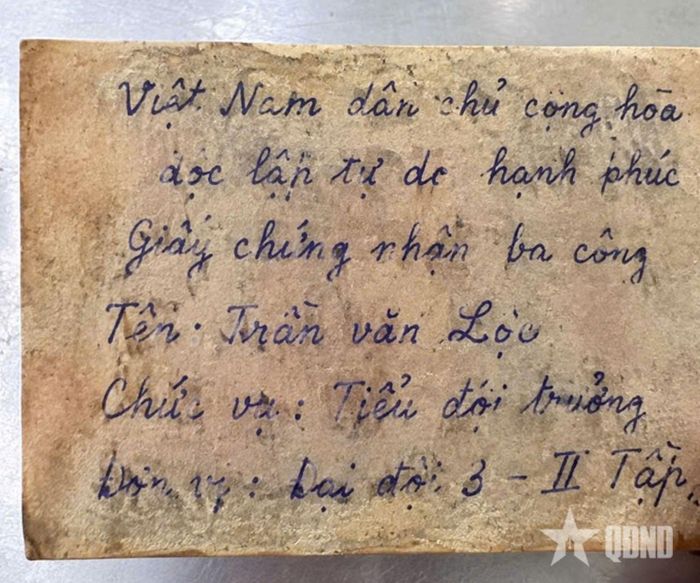 Việt Nam dân chủ cộng hòa
độc lập tự do hạnh phúc
Giấy chứng nhận ba công
Tên: Trần văn Lộc
Chức vụ: Tiểu đội trưởng
Đơn vị: Đại đội 3 - II Tập
QĐND